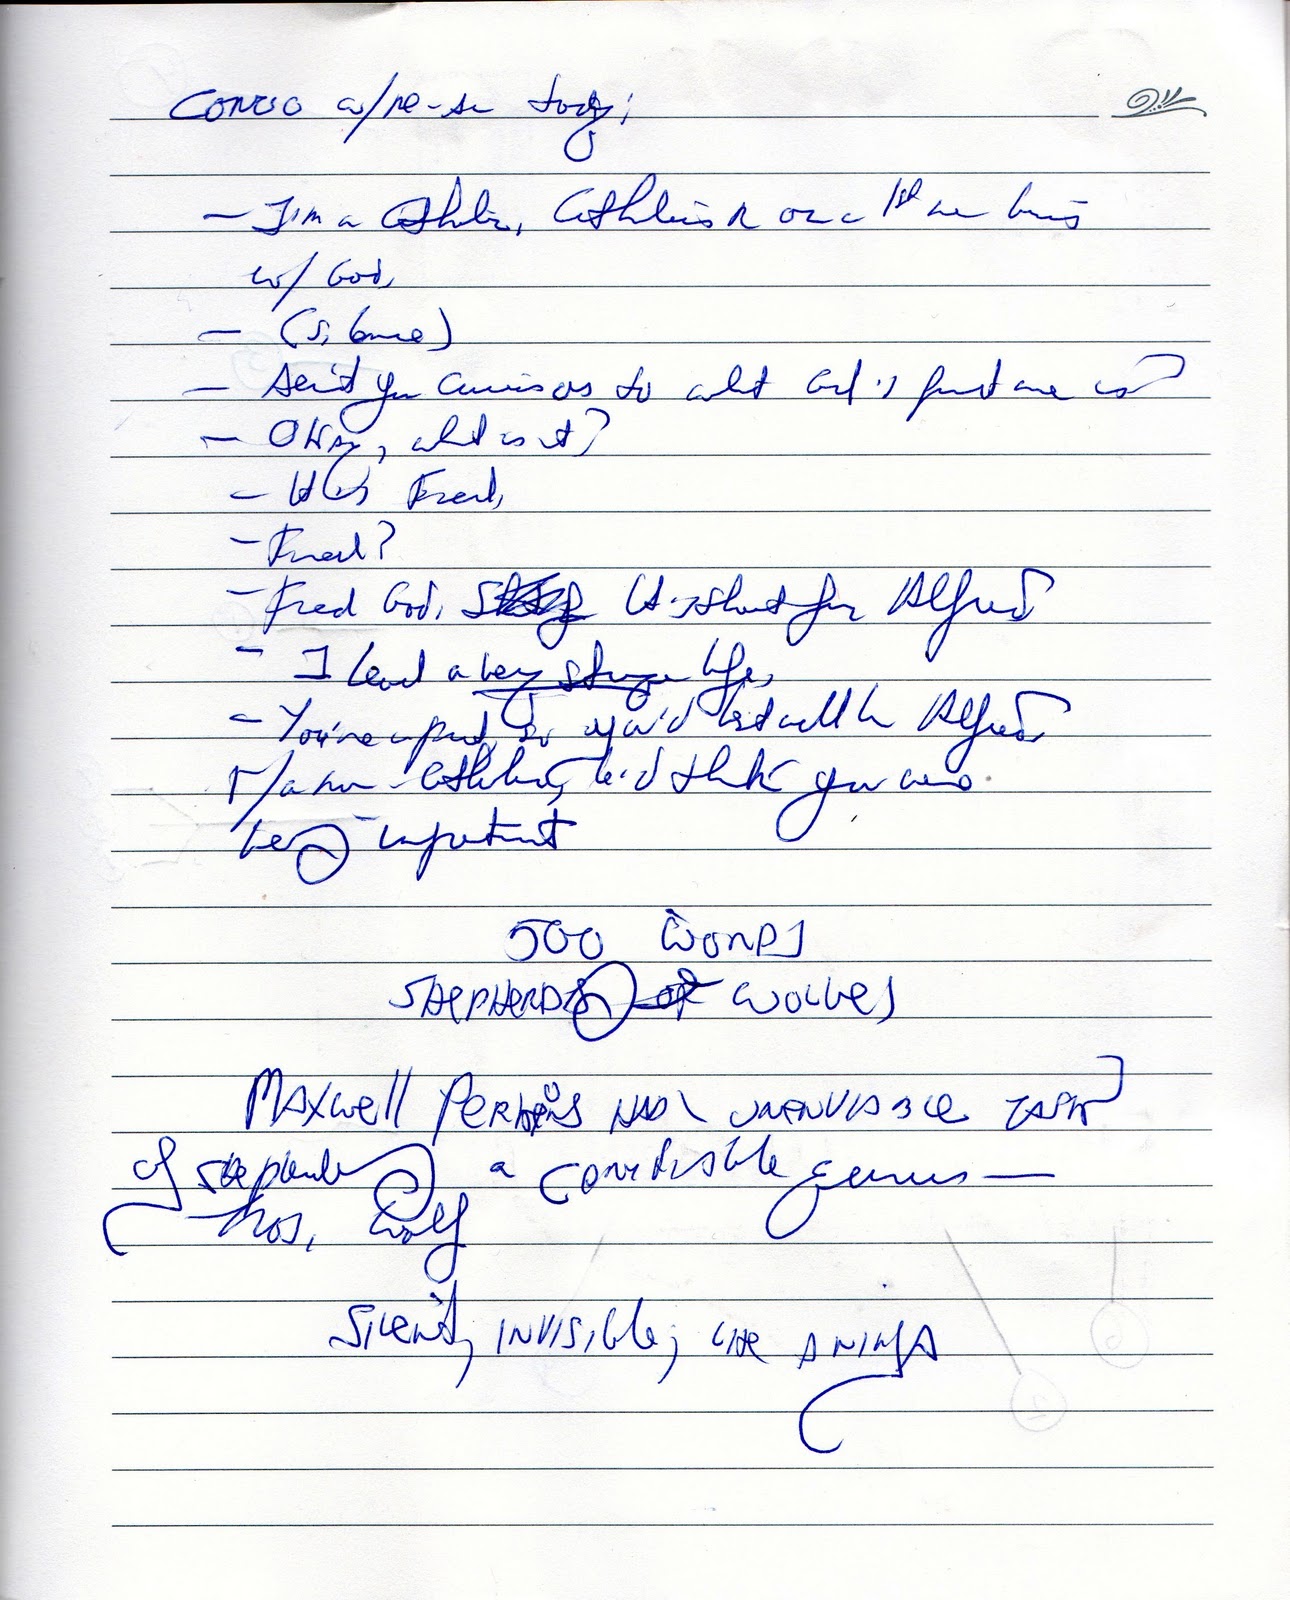 Convo w/ today:
- I'm a Catholic, Catholics R on a 1st name basis
w/ God.
- (Silence)
- Aren't you curious as to what God's first name is?
- Okay, what is it?
- It's Fred.
- Fred?
- Fred God. It's short for Alfred
- I lead a very strange life.
- You're a priest, so you'd best call him Alfred
Non-Catholics, he'd think you were
being impertinent
500 WORDS
SHEPHERDS of WOLVES
MAXWELL PERKINS HAD UNENVIABLE TASK
of shepherding a genius —
Thos. Wolf
SILENT, INVISIBLE, LIKE A NINJA